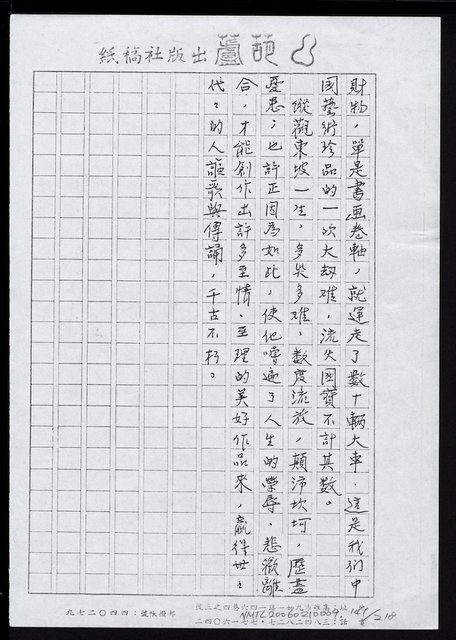 葫蘆出版社稿紙
財物，單是書画卷軸，就運走了數十輛大車．這是我們中
國藝術珍品的一次大劫难，流失國寶不計其數。
縱觀東坡一生，多災多难，数度流放，顛沛坎坷，歷盡
憂患；也許正因為如此，使他嚐遍了人生的榮辱、悲歡離
合，才能創作出許多至情、至理的美好作品來，贏得世々
代々的人謳歌與傳誦，千古不朽。
NMTL20060210069